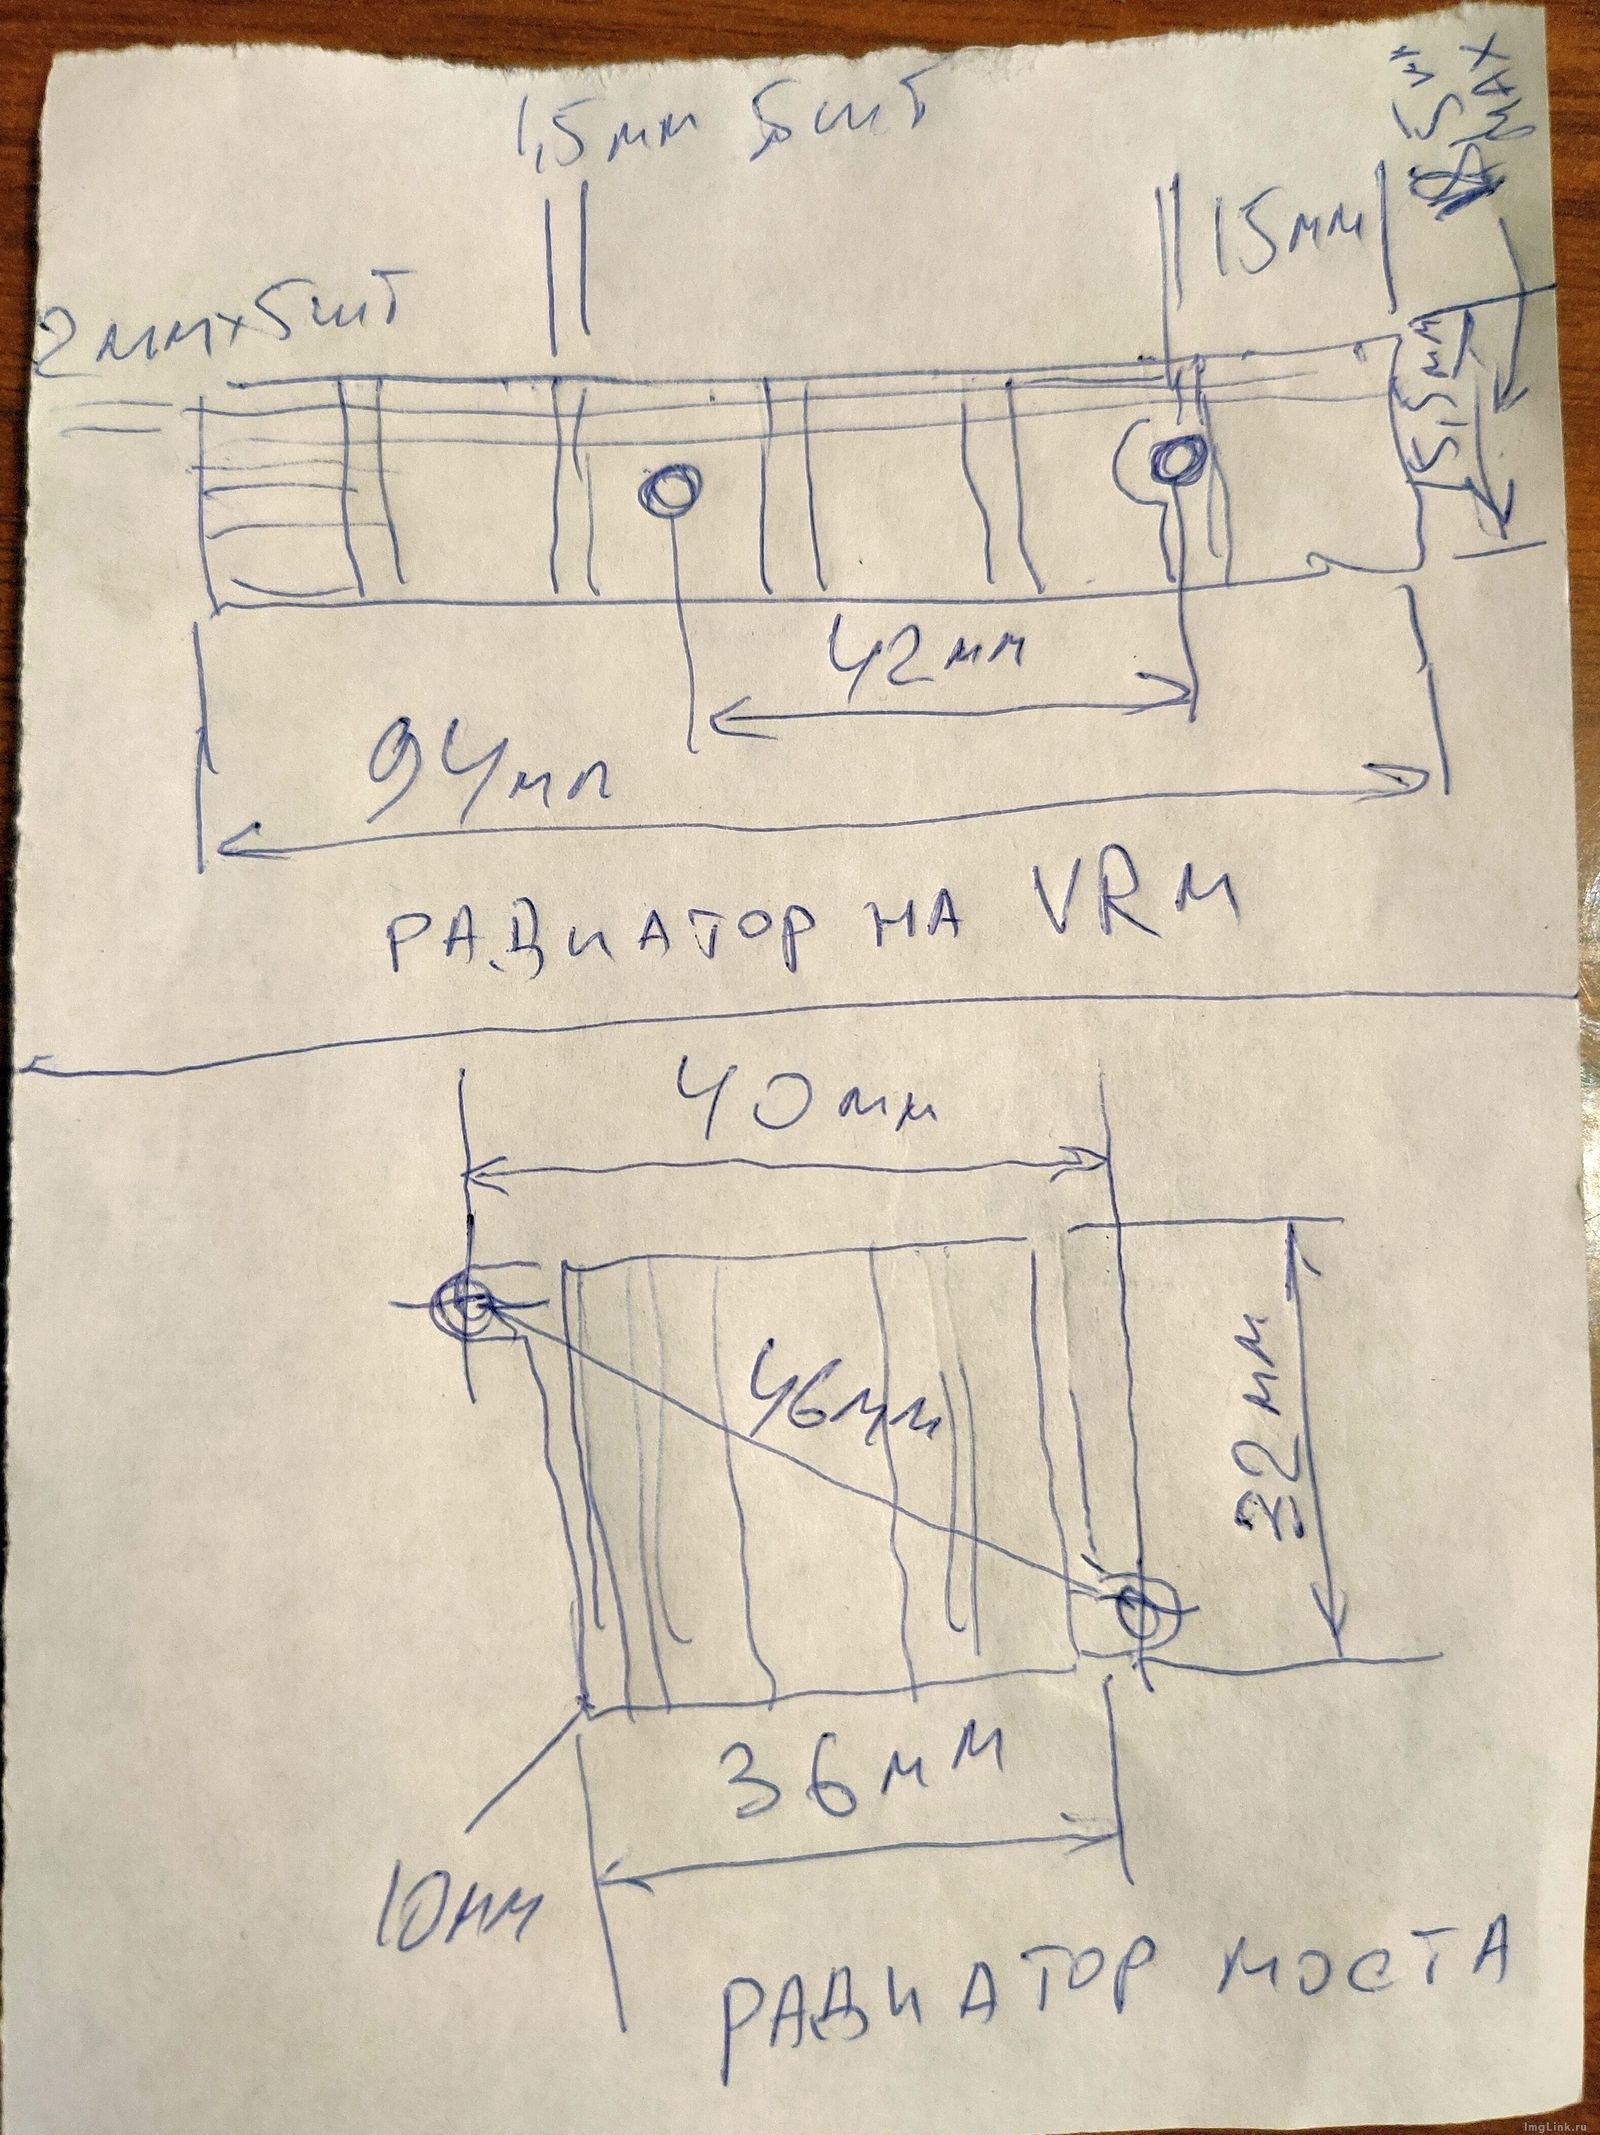 1,5мм 5шт
15мм
MAX
2мм×5шт
15,5мм
42мм
94мм
РАДИАТОР НА VRM
40мм
46мм
32мм
36мм
10мм
РАДИАТОР МОСТА
ImgLink.ru